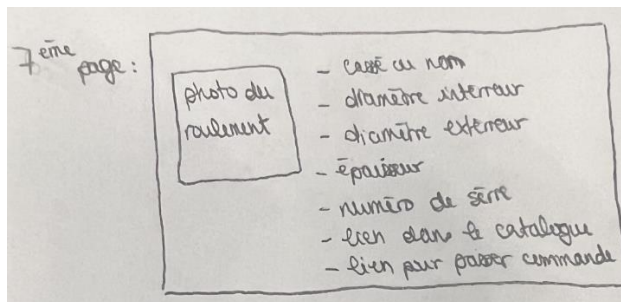 7ème page :
photo du
roulement
- cassé ou non
- diamètre interieur
- diamètre extérieur
- épaisseur
- numéro de série
- lien dans le catalogue
- lien pour passer commande